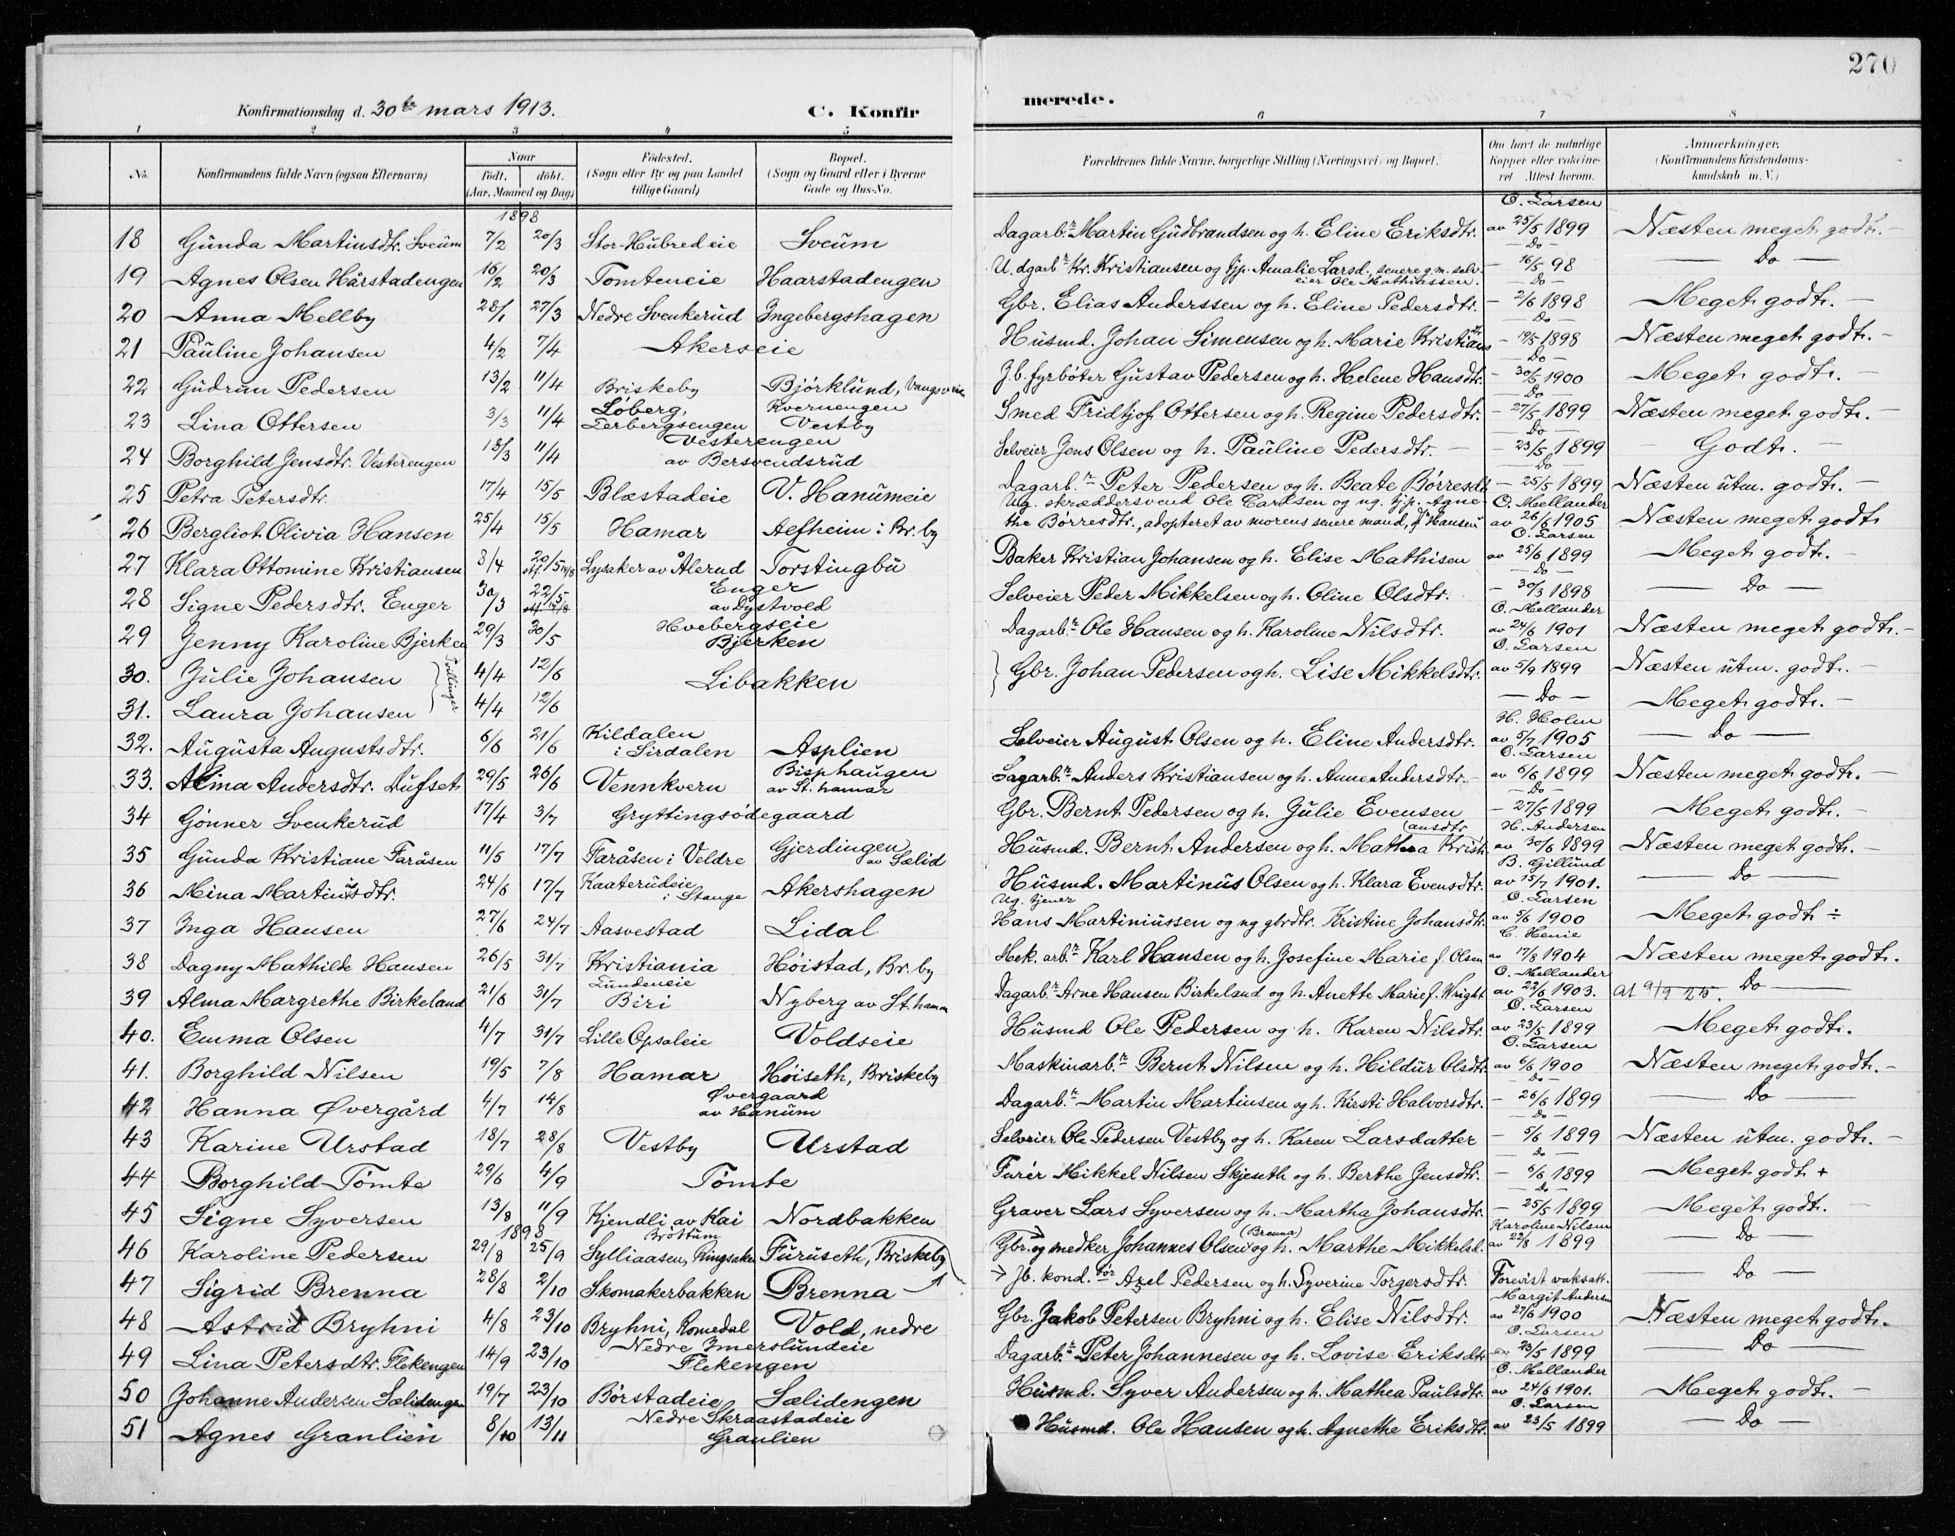 270
Konfirmationsdag d. 30te mars 1913. C. Konfirmerede.
1 2 3 4 5 6 7 8
No. Konfirmandens fulde Navn (ogsaa Efternavn) Naar født, døbt. (Aar, Maaned og Dag) Fødested. (Sogn eller By og paa Landet tillige Gaard) Bopæl. (Sogn og Gaard eller i Byerne Gade og Hus-No. Forældrenes fulde Navne, borgerlige Stilling (Næringsvei) og Bopæl. Om havt de naturlige Kopper eller vakcineret. Attest herom. Anmærkninger. (Konfirmandens Kristendomskundskab m. V.)
1898
18 Gunda Martinsdtr. Sveum 7/2 20/3 Stor-Hubred eie Sveum Dagarbr. Martin Gudbrandsen og h. Eline Eriksdtr. O. Larsen av 25/5 1899 Næsten meget godt. —
19 Agnes Olsen Hårstadengen 16/2 20/3 Tomteneie Haarstadengen U. dgarbr. Kr. Kristiansen og pp. Amalie Larsd., senere g. m. selveier Ole Mathiassen. Do — 16/5 98 — Do —
20 Anna Mellby 28/1 27/3 Nedre Svenkerud Ingebergshagen Gbr. Elias Anderssen og h. Eline Pedersdtr. — Do — 2/6 1898 Meget godt. —
21 Pauline Johansen 4/2 7/4 Akerseie Husmd. Johan Simensen og h. Marie Kristians Do — 19/5 1898 Næsten meget godt. —
22 Gudrun Pedersen 13/2 11/4 Briskeby Bjørklund, Vangsveien J.b. fyrbøter Gustav Pedersen og h. Helene Hansdtr. Do — 30/5 1900 Meget godt. —
23 Lina Ottersen 3/3 11/4 Løberg, Lerbergsengen Kvernengen Vestby Smed Fridtjof Ottersen og h. Regine Pedersdtr. Do — 27/5 1899 Næsten meget godt. —
24 Borghild Jensdtr. Vesterengen 18/3 11/4 Vesterengen av Bersvendsrud Selveier Jens Olsen og h. Pauline Pedersdtr. — Do — 23/5 1899 — Godt. —
25 Petra Petersdtr. 17/4 15/5 Blæstadeie V. Hanumeie Dagarbr. Peter Pedersen og h. Beate Børresdt. Do — 25/5 1899 Næsten utm. godt. —
26 Bergliot Olivia Hansen 25/4 15/5 Hamar Alfheim i Br. by Ug. skræddersvend Ole Carlsen og ug. tjp. Agnethe Børresdtr., adopteret av morens senere mand, Hansen O. Mellander av 26/6 1905 Næsten meget godt
27 Klara Ottomine Kristiansen 3/4 20/5 14/8 Lysaker av Ålerud Torstingbu Baker Kristian Johansen og h. Elise Mathisen O. Larsen av 25/6 1899 Meget godt. —
28 Signe Pedersdtr. Enger 30/3 22/5 14/8 Enger av Dystvold Selveier Peder Mikkelsen og h. Oline Olsdtr. Do — 30/3 1898 — Do —
29 Jenny Karoline Bjerken 29/3 30/5 Hvebergseie Bjerken Dagarbr. Ole Hansen og h. Karoline Nilsdtr. O. Mellander av 24/6 1901 Næsten meget godt. —
30. Julie Johansen Tvillinger 4/4 12/6 Libakken Gbr. Johan Pedersen og h. Lise Mikkelsdtr. O. Larsen av 5/9 1899 Næsten utm. godt. —
31. Laura Johansen 4/4 12/6 — Do — Meget godt. —
32. Augusta Augustsdtr. 6/6 21/6 Kildalen i Sirdalen Asplien Selveier August Olsen og h. Eline Andersdtr. H. Holm av 5/7 1905 — Do —
33. Alma Andersdtr. Dufset 29/5 26/6 Vennkvern Bisphaugen av St. hamar Sagarbr. Anders Kristiansen og h. Anne Andersdtr. — O. Larsen av 6/6 1899 Næsten meget godt. —
34 Gønner Svenkerud 17/4 3/7 Gryttingsødegaard Gbr. Bernt Pedersen og h. Julie Evensen Do — 27/5 1899 Meget godt. —
35 Gunda Kristiane Faråsen 11/5 17/7 Faråsen i Veldre Gjerdingen av Sælid Husmd. Bernt Andersen og h. Mathea Kristiansdtr H. Andersen av 30/6 1899 Næsten meget godt. —
36 Mina Martinusdtr. 24/6 17/7 Kaaterudeie i Stange Akershagen Husmd. Martinus Olsen og h. Klara Evensdtr. B. Gillund av 15/7 1901. — Do —
37 Inga Hansen 27/6 24/7 Aasvestad Lidal Ug. tjener Hans Martiniussen og ug gbrdtr. Kristine Johansdtr. O. Larsen av 5/6 1900 Meget godt ÷
38 Dagny Mathilde Hansen 26/5 31/7 Kristiania Høistad, Br. by Mek. arbr. Karl Hansen og h. Josefine Marie f. Olsen C. Henie av 17/8 1904 Næsten meget godt.
39 Alma Margrethe Birkeland 21/6 31/7 Lundeneie Biri Nyberg av St. hamar Dagarbr. Arne Hansen Birkeland og h. Anette Marie f. Wright O. Mellander av 22/6 1903. at 9/9 25. Do —
40. Emma Olsen 4/7 31/7 Lille Opsaleie Voldseie Husmd Ole Pedersen og h. Karen Nilsdtr. O. Larsen av 23/5 1899 Meget godt.
41. Borghild Nilsen 19/5 7/8 Hamar Høiseth, Briskeby Maskinarbr. Bernt Nilsen og h. Hildur Olsdtr. O. Larsen av 6/6 1900 Næsten meget godt. —
42 Hanna Øvergård 4/7 14/8 Øvergaard av Hanum Dagarbr. Martin Martinsen og h. Kirsti Halvorsdtr. Do — 26/6 1899 — Do —
43 Karine Urstad 18/7 28/8 Vestby Urstad Selveier Ole Pedersen Vestby og h. Karen Larsdatter Do — 5/6 1899 Næsten utm. godt. —
44 Borghild Tømte 29/6 4/9 Tømte Furér Mikkel Nilsen Skjeseth og h. Berthe Jensdtr. Do — 6/6 1899 Meget godt +
45 Signe Syversen 13/8 11/9 Kjendli av Kai Nordbakken Graver Lars Syversen og h. Martha Johansdtr. Do — 25/5 1899 Meget godt. —
1898
46 Karoline Pedersen 29/8 25/9 Brøttum Sylliaasen, Ringsaker Furuseth, Briskeby Gbr. og smedker Johannes Olsen (Brenna) og h. Marthe Mikkelsd. Karoline Nilsen av 22/8 1899 — Do —
47 Sigrid Brenna 28/8 2/10 Skomakerbakken Brenna Jb. kond.tør Axel Pedersen og h. Syverine Torgersdtr. Forevist vaksatt. — Do —
48 Astrid Bryhni 4/8 23/10 Bryhni, Romedal Vold, nedre Gbr. Jakob Petersen Bryhni og h. Elise Nilsdtr. Margit Andersen av 27/6 1900 Næsten meget godt.
49 Lina Petersdtr. Flekengen 14/9 23/10 Nedre Imerslundeie Flekengen Dagarbr. Peter Johannesen og h. Lovise Eriksdtr O. Larsen 23/5 1899 — Do —
50 Johanne Andersen Sælidengen 19/7 23/10 Børstadeie Sælidengen Husmd. Syver Andersen og h. Mathea Paulsdtr. O. Mellander av 24/6 1901. Meget godt. —
51 Agnes Granlien 8/10 13/11 Nedre Skraastadeie Granlien Husmd. Ole Hansen og h. Agnethe Eriksdtr. O. Larsen av 23/5 1899 — Do —